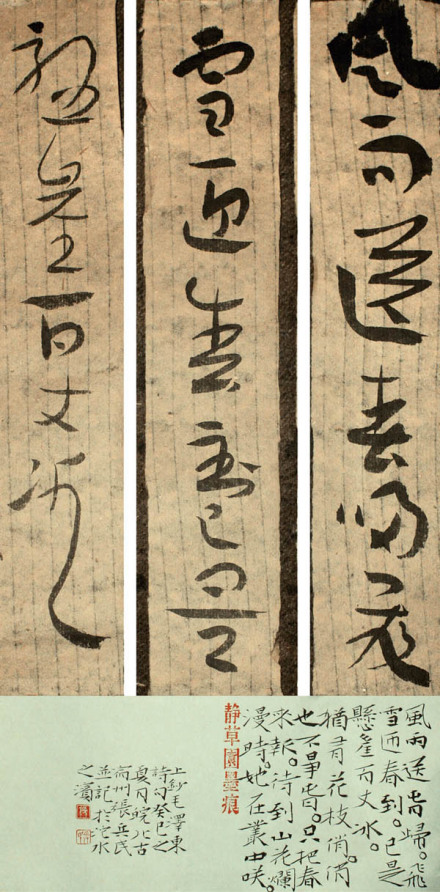 风雨送春归飛
雪迎春到已是
懸崖百丈冰
風雨送春歸。飛
雪迎春到。已是
懸崖百丈冰。
猶有花枝俏。俏
也不爭春。只把春
來報。待到山花爛
漫時。她在叢中咲。
静草園墨痕
上鈔毛澤東
詩句癸巳之
夏月皖北古
宿州張兵民
並記於沱水
之濱